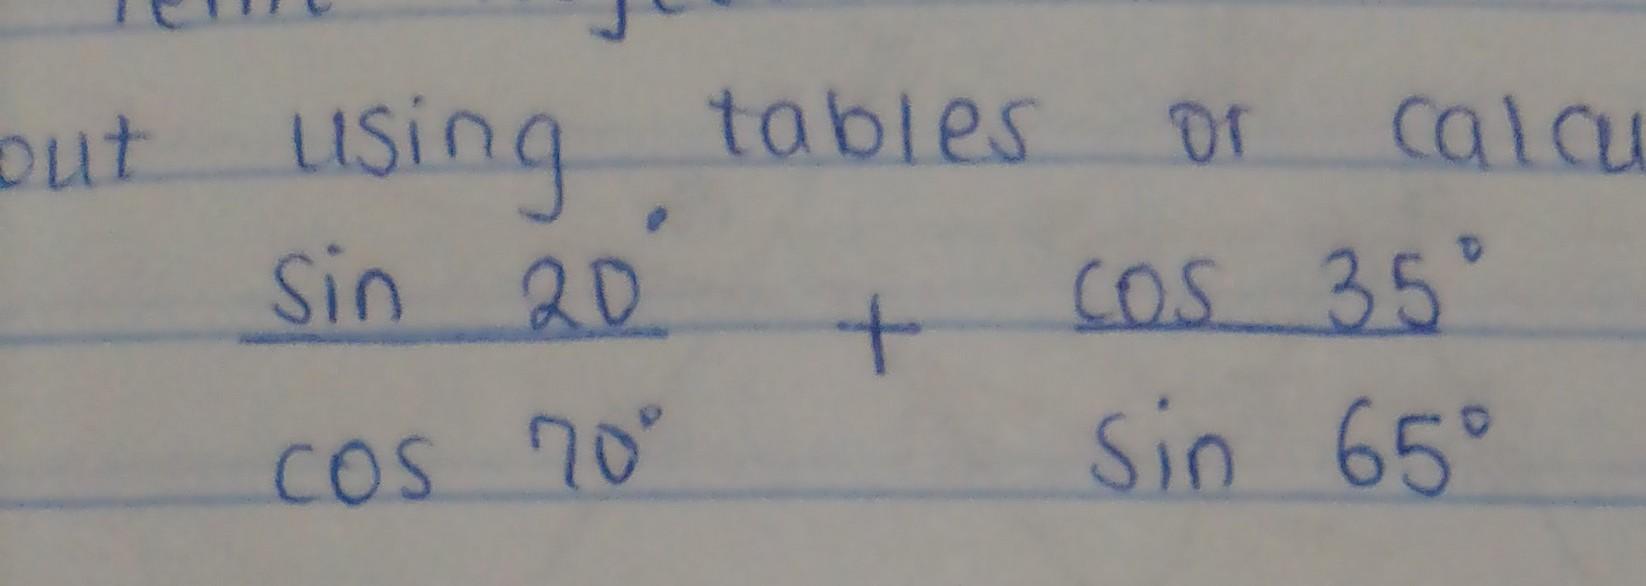 out using tables or calcu
sin 20° + cos 35°
cos 70° sin 65°